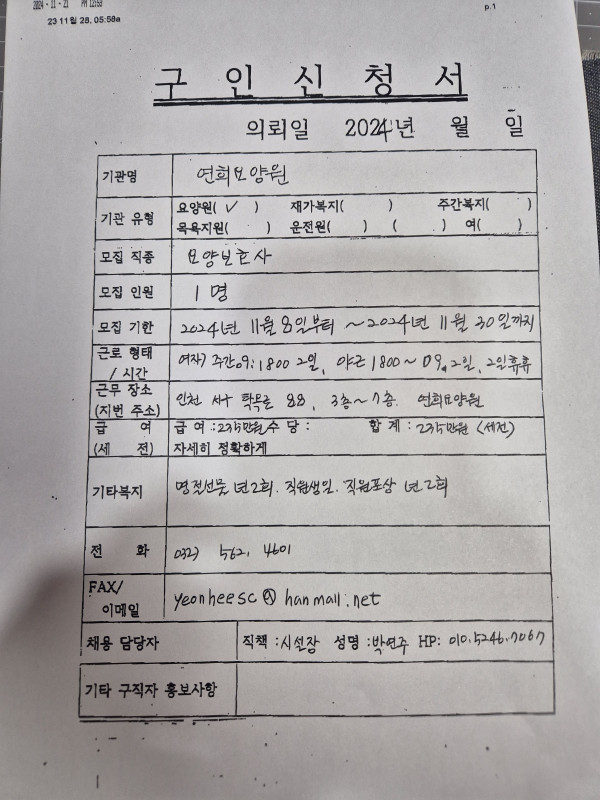 2024-11-21 PM 12:55
23 11월 28, 05:58a
p.1
구 인 신 청 서
의뢰일 2024년 월 일
기관명 연희요양원
기관 유형 요양원( ✓ ) 재가복지( ) 주간복지( )
목욕지원( ) 운전원( ) ( ) 여( )
모집 직종 요양보호사
모집 인원 1 명
모집 기한 2024년 11월 8일부터 ~ 2024년 11월 30일까지
근로 형태 / 시간 여자) 주간09:1800 2일, 야근 1800~09, 2일, 2일휴휴
근무 장소 (지번 주소) 인천 서구 탁옥로 88, 3층~7층. 연희요양원
급 여 급 여 :235만원 수 당 : 합 계 : 235만원 (세전)
(세 전) 자세히 정확하게
기타복지 명절선물 년2회. 직원생일. 직원포상 년2회
전 화 032) 562. 4601
FAX/ 이메일 yeonheesc@hanmail.net
채용 담당자 직책 :시설장 성명 :박연주 HP: 010.5246.7067
기타 구직자 홍보사항